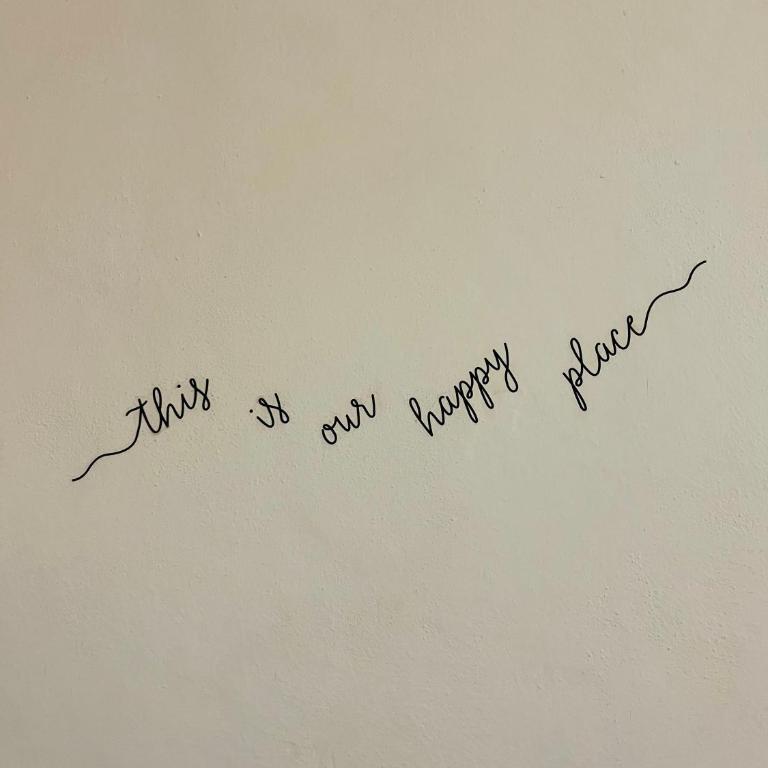 this is our happy place